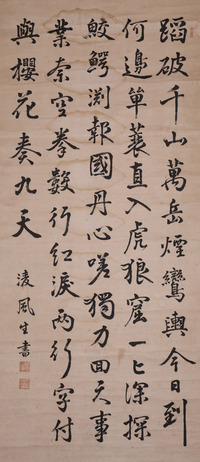 蹈破千山萬岳煙鸞輿今日到
何邊箪蓑直入虎狼窟一匕深探
鮫鰐渕報國丹心嗟獨力回天事
業奈空拳數行紅淚兩行字付
與櫻花奏九天
淩風生書